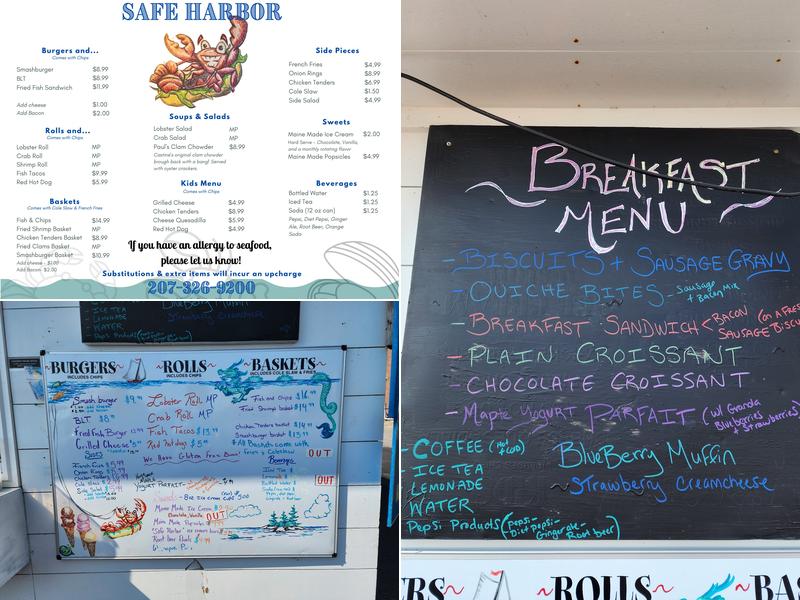 SAFE HARBOR
Burgers and...
Comes with Chips
Smashburger $8.99
BLT $8.99
Fried Fish Sandwich $11.99
Add cheese $1.00
Add Bacon $2.00
Rolls and...
Comes with Chips
Lobster Roll MP
Crab Roll MP
Shrimp Roll MP
Fish Tacos $9.99
Red Hot Dog $5.99
Baskets
Comes with Cole Slaw & French Fries
Fish & Chips $14.99
Fried Shrimp Basket MP
Chicken Tenders Basket $8.99
Fried Clams Basket MP
Smashburger Basket $10.99
Add cheese - $1.00
Add Bacon $2.00
Soups & Salads
Lobster Salad MP
Crab Salad MP
Paul's Clam Chowder $8.99
Castine's original clam chowder
brough back with a bang! Served
with oyster crackers.
Kids Menu
Comes with Chips
Grilled Cheese $4.99
Chicken Tenders $8.99
Cheese Quesadilla $5.99
Red Hot Dog $4.99
Side Pieces
French Fries $4.99
Onion Rings $8.99
Chicken Tenders $6.99
Cole Slaw $1.50
Side Salad $4.99
Sweets
Maine Made Ice Cream $2.00
Hard Serve - Chocolate, Vanilla,
and a monthly rotating flavor
Maine Made Popsicles $4.99
Beverages
Bottled Water $1.25
Iced Tea $1.25
Soda (12 oz can) $1.25
Pepsi, Diet Pepsi, Ginger
Ale, Root Beer, Orange
Soda
If you have an allergy to seafood,
please let us know!
Substitutions & extra items will incur an upcharge
207-326-9200
BREAKFAST
MENU
- BISCUITS + SAUSAGE GRAVY
- QUICHE BITES - Sausage
+ Bacon Mix
- BREAKFAST SANDWICH < BACON (on A FRES
SAUSAGE BISCU
- PLAIN CROISSANT
- CHOCOLATE CROISSANT
- Maple Yogurt PARFAIT (w/ Granola
Blueberries
+ Strawberries)
- COFFEE (Hot + Iced)
- ICE TEA
LEMONADE
WATER
Pepsi Products (pepsi-
Diet pepsi-
Gingerale-
Root beer)
BlueBerry Muffin
Strawberry Creamcheese
ICE TEA
LEMONADE
- WATER
Pepsi Products
BlueBerry Muffin
Strawberry Creamcheese
~BURGERS~
INCLUDES CHIPS
Smash burger
BLT
Fried Fish Burger
Grilled Cheese
Sides
French fries
Onion Rings
Side Salad
~ROLLS~
INCLUDES CHIPS
Lobster Roll MP
Crab Roll MP
Fish Tacos $13
Red Hot dogs $5
We Have Gluten Free Buns
YOGURT PARFAIT
~BASKETS~
INCLUDES COLE SLAW & FRIES
Fish and Chips $16
Fried Shrimp basket $14
Chicken tenders basket $14
Smashburger basket $13
All Baskets come with
fries + Coleslaw
OUT
OUT
OUT
Maine Made Ice Cream
Chocolate, Vanilla
Root beer floats
RS~
~ROLLS~
~BAS